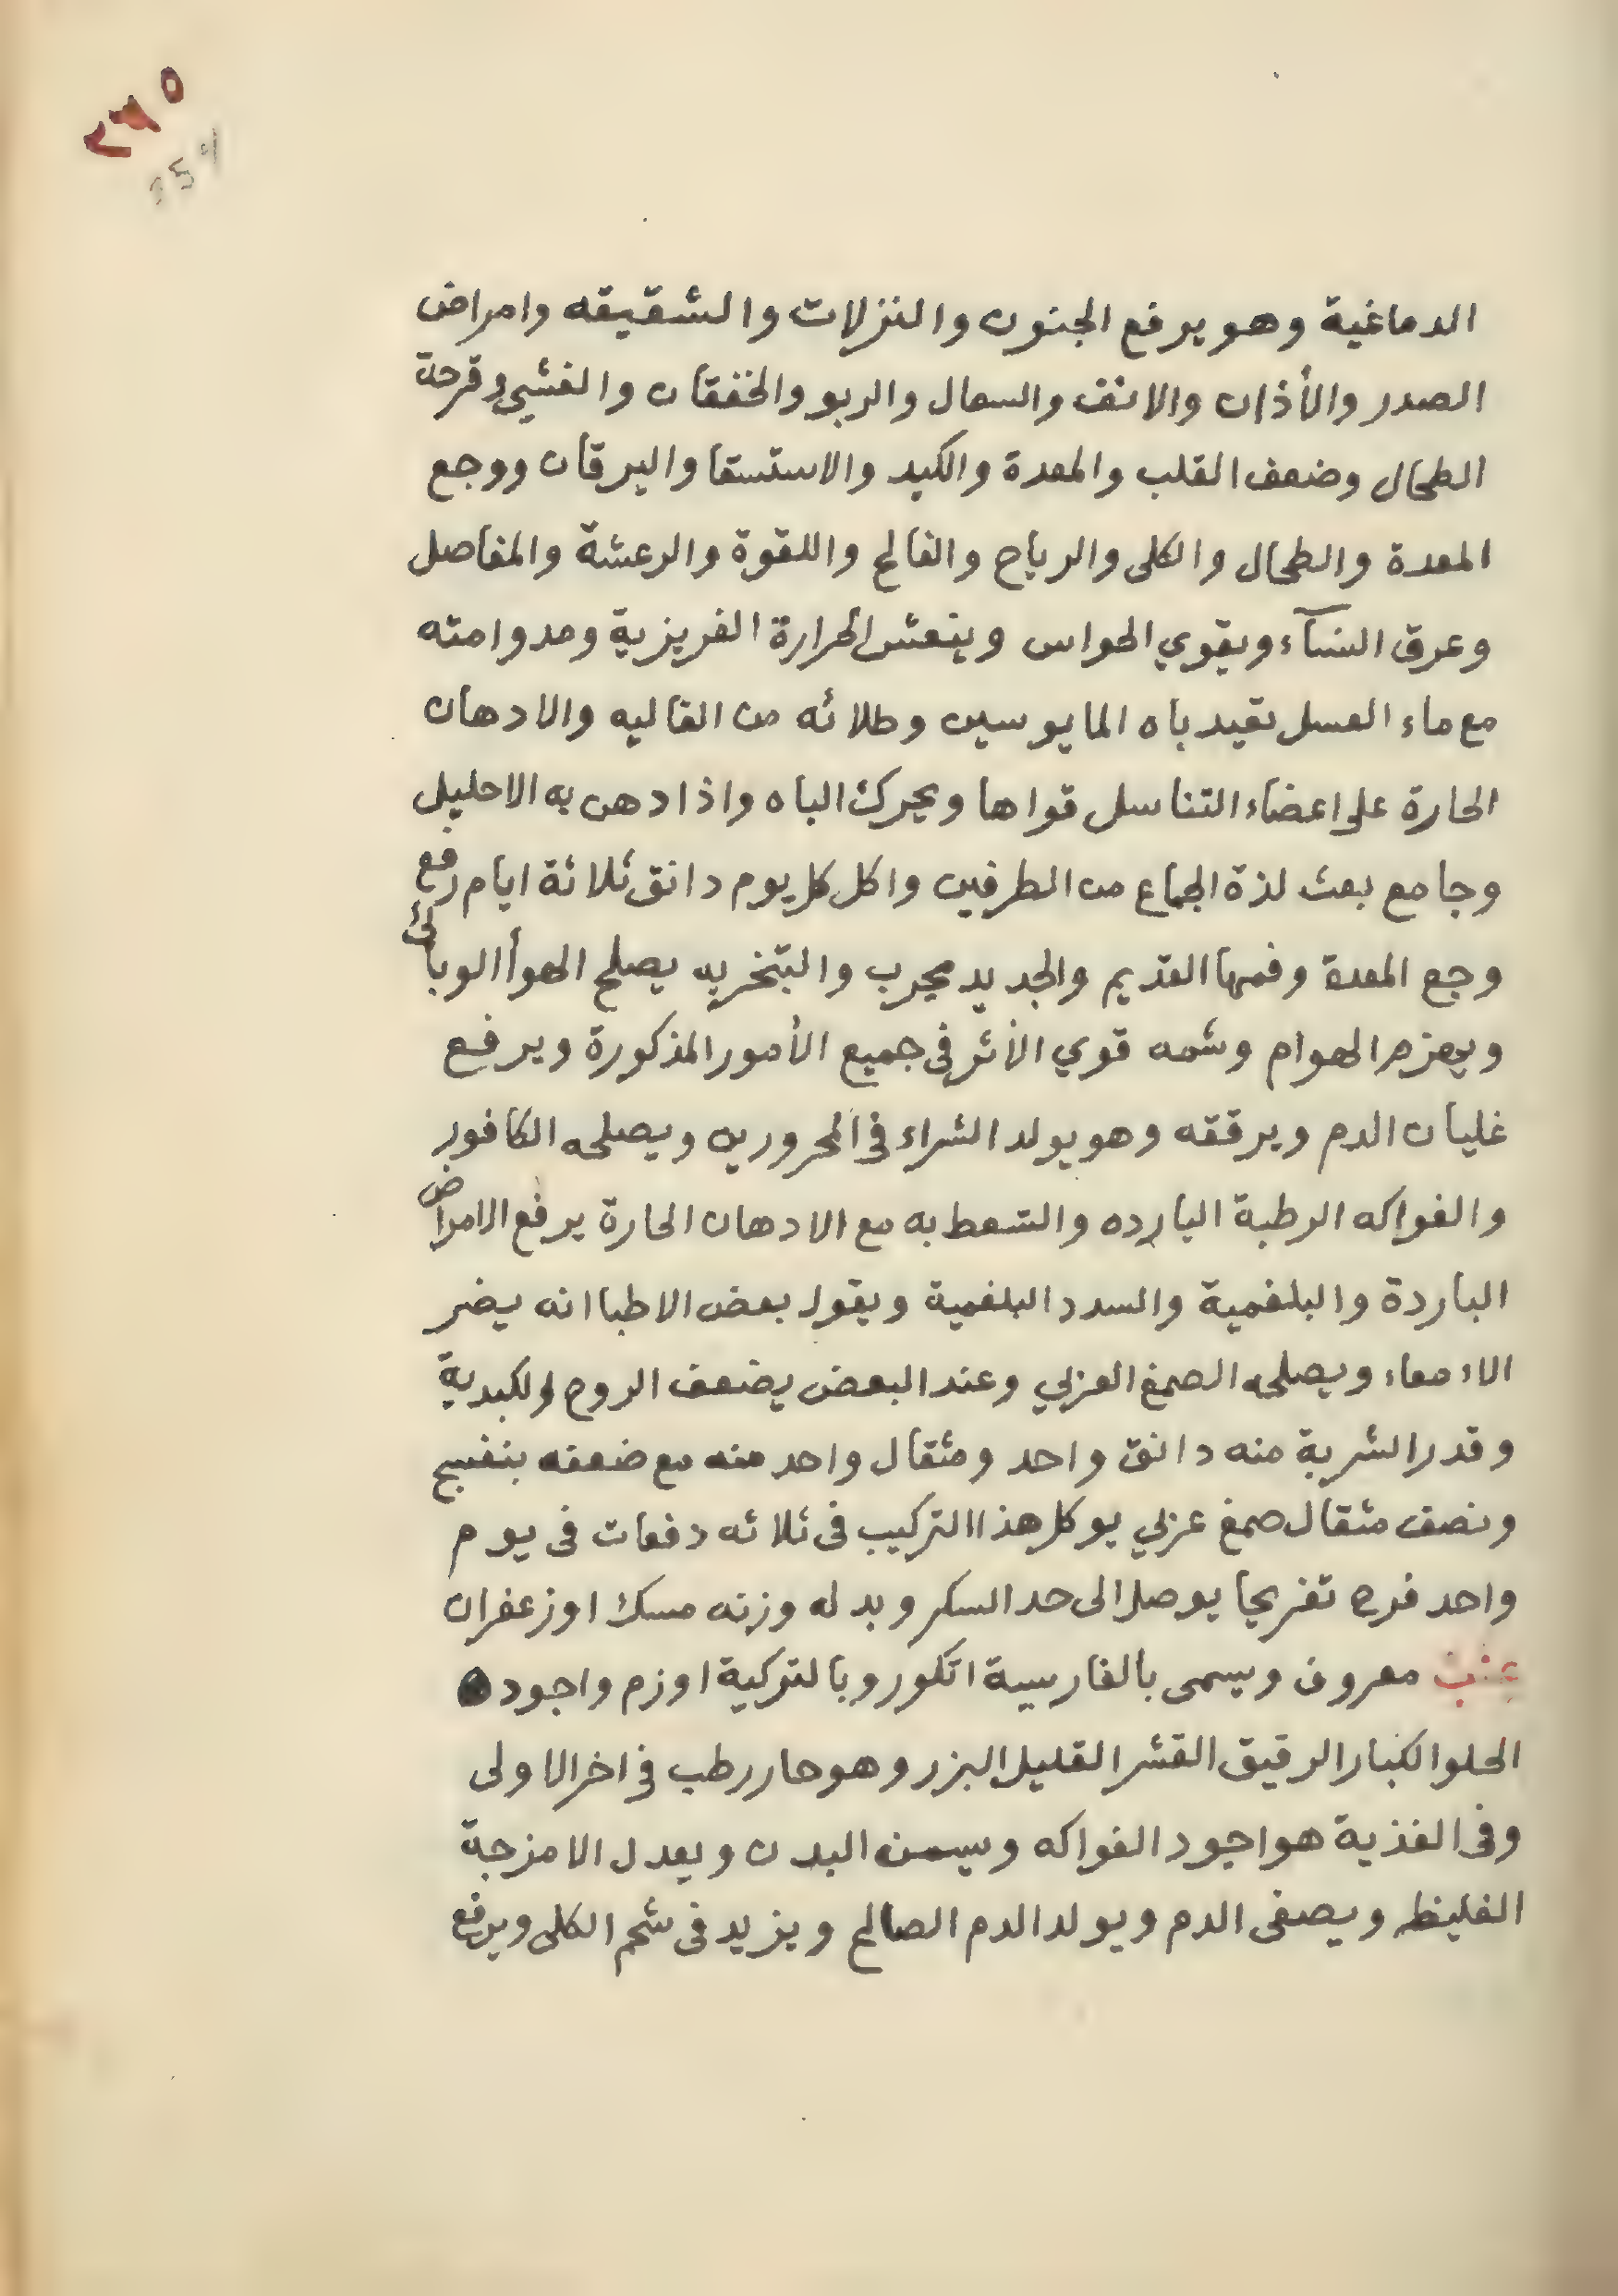 ٢٦٥
الدماغية وهو يرفع الجنون والنزلات والشقيقه وامراض
الصدر والأذان والانف والسعال والربو والخفقان والغشي وقرحة
الطحال وضعف القلب والمعدة والكبد والاستسقا واليرقان ووجع
المعدة والطحال والكلى والرياح والفالج واللقوة والرعشة والمفاصل
وعرق النسآء ويقوي الحواس وينعش الحرارة الغريزية ومداومته
مع ماء العسل تعيد باه المايوسين وطلائه من الغاليه والادهان
الحارة على اعضاء التناسل قواها ويحرك الباه واذا دهن به الاحليل
وجامع بعث لذة الجماع من الطرفين واكل كل يوم دانق ثلاثة ايام رفع
وجع المعدة وفمها القديم والجديد مجرب والتبخر به يصلح الهوأ الوبائ
ويهزم الهوام وشمه قوي الاثر فى جميع الأمور المذكورة ويرفع
غليان الدم ويرققه وهو يولد الشراء فى المحرورين ويصلحه الكافور
والفواكه الرطبة البارده والتسعط به مع الادهان الحارة يرفع الامراض
الباردة والبلغمية والسدد البلغمية ويقول بعض الاطبا انه يضر
الاءمعاء ويصلحه الصمغ العربي وعند البعض يضعف الروح الكبدية
وقدر الشربة منه دانق واحد ومثقال واحد منه مع ضعفه بنفسج
ونصف مثقال صمغ عربي يوكل هذا التركيب فى ثلاثه دفعات فى يوم
واحد فرح تفريحا يوصل الى حد السكر وبدله وزنه مسك اوزعفران
عنب معروف ويسمى بالفارسية انكور وبالتركية اوزم واجوده
الحلو الكبار الرقيق القشر القليل البزر وهو حار رطب فى اخر الاولى
وفى الغذية هو اجود الفواكه ويسمن البدن ويعدل الامزجة
الغليظه ويصفى الدم ويولد الدم الصالح ويزيد فى شحم الكلى ويرفع